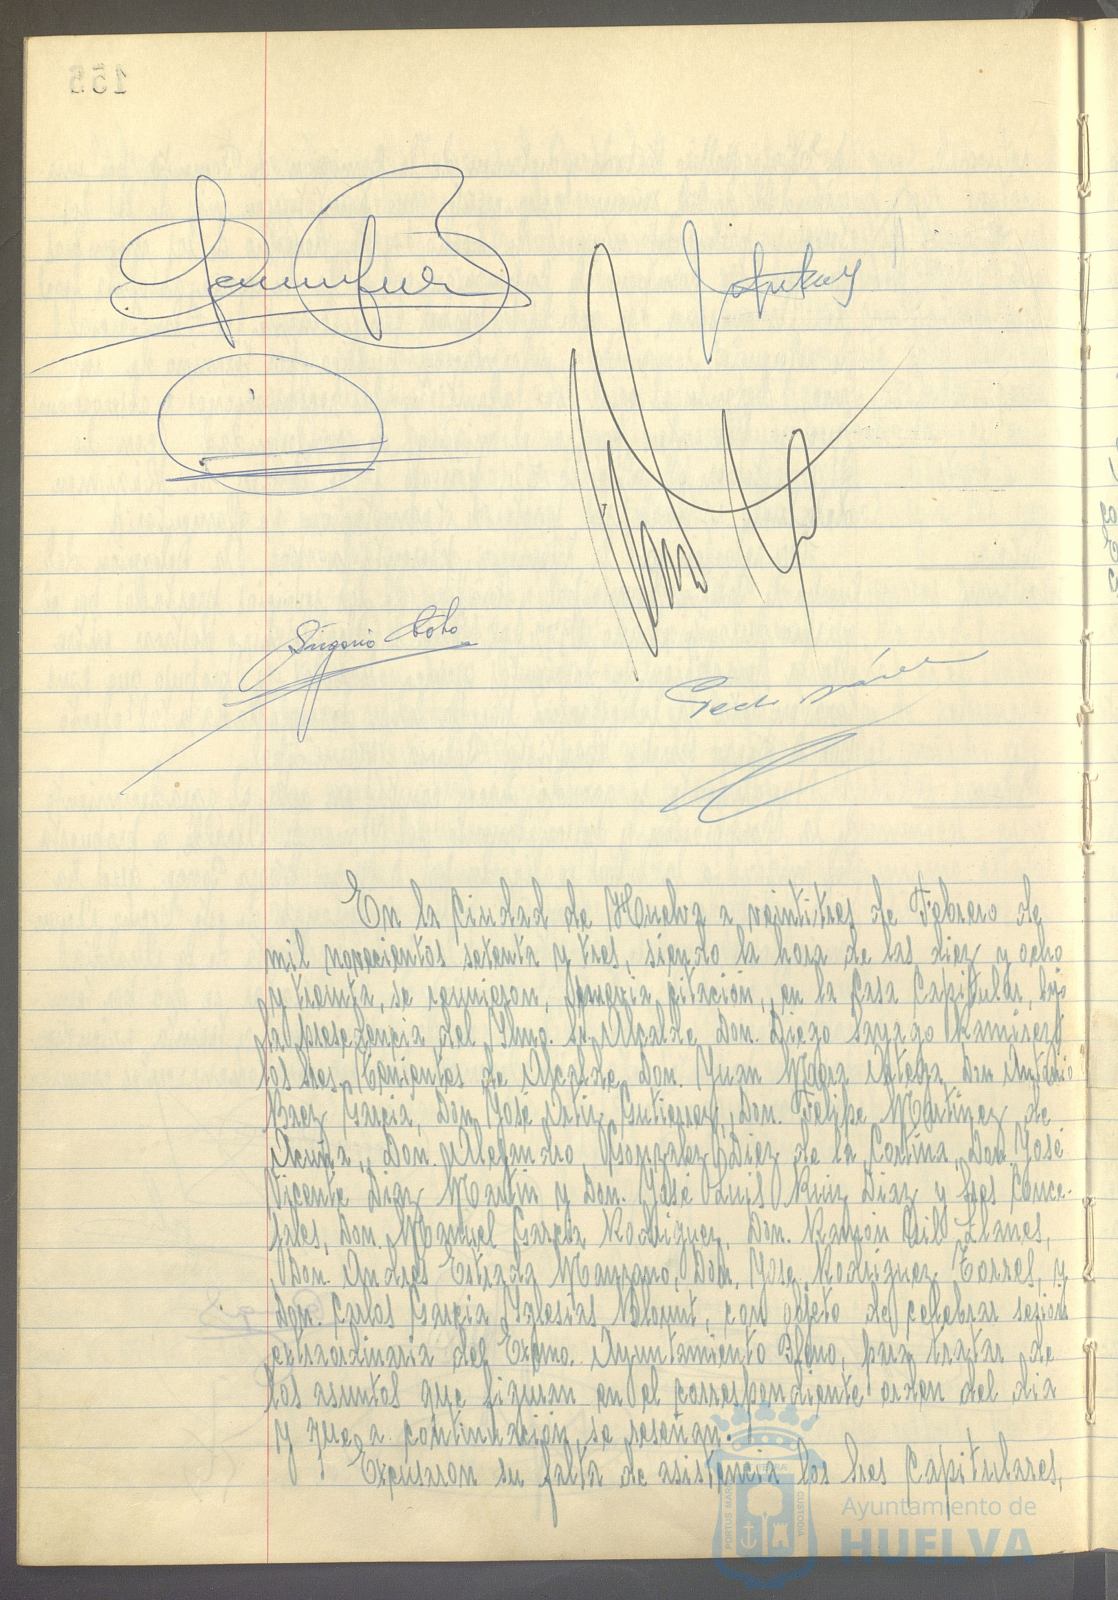 Gregorio Coto
En la Ciudad de Huelva a veintitres de Febrero de
mil novecientos setenta y tres, siendo la hora de las diez y ocho
y treinta, se reunieron, previa citación, en la Casa Capitular, bajo
la presidencia del Ylmo. Sr. Alcalde, Don. Diego Sayago Ramirez,
los Sres. Tenientes de Alcalde, Don. Juan Mora Don Antonio
Baez Garcia, Don. José Ortiz Gutierrez, Don. Felipe Martinez de
Acuña, Don. Alejandro Gonzalez Diez de la Cortina, Don José
Vicente Diaz Martin y Don. José Luis Ruiz Diaz y Sres Conce-
jales, Don. Manuel Garcia Rodriguez, Don. Ramón Gil Llanes,
Don. Andrés Estrada Manzano, Don. José Rodriguez Torres, y
don. Carlos Garcia Yglesias con objeto de celebrar sesión
extraordinaria del Excmo. Ayuntamiento Pleno, para tratar de
los asuntos que figuran en el correspondiente orden del dia
y que a continuación se reseñan.
Excusaron su falta de asistencia los Sres Capitulares,
PORTUS MARIS
CUSTODIA
Ayuntamiento de
HUELVA